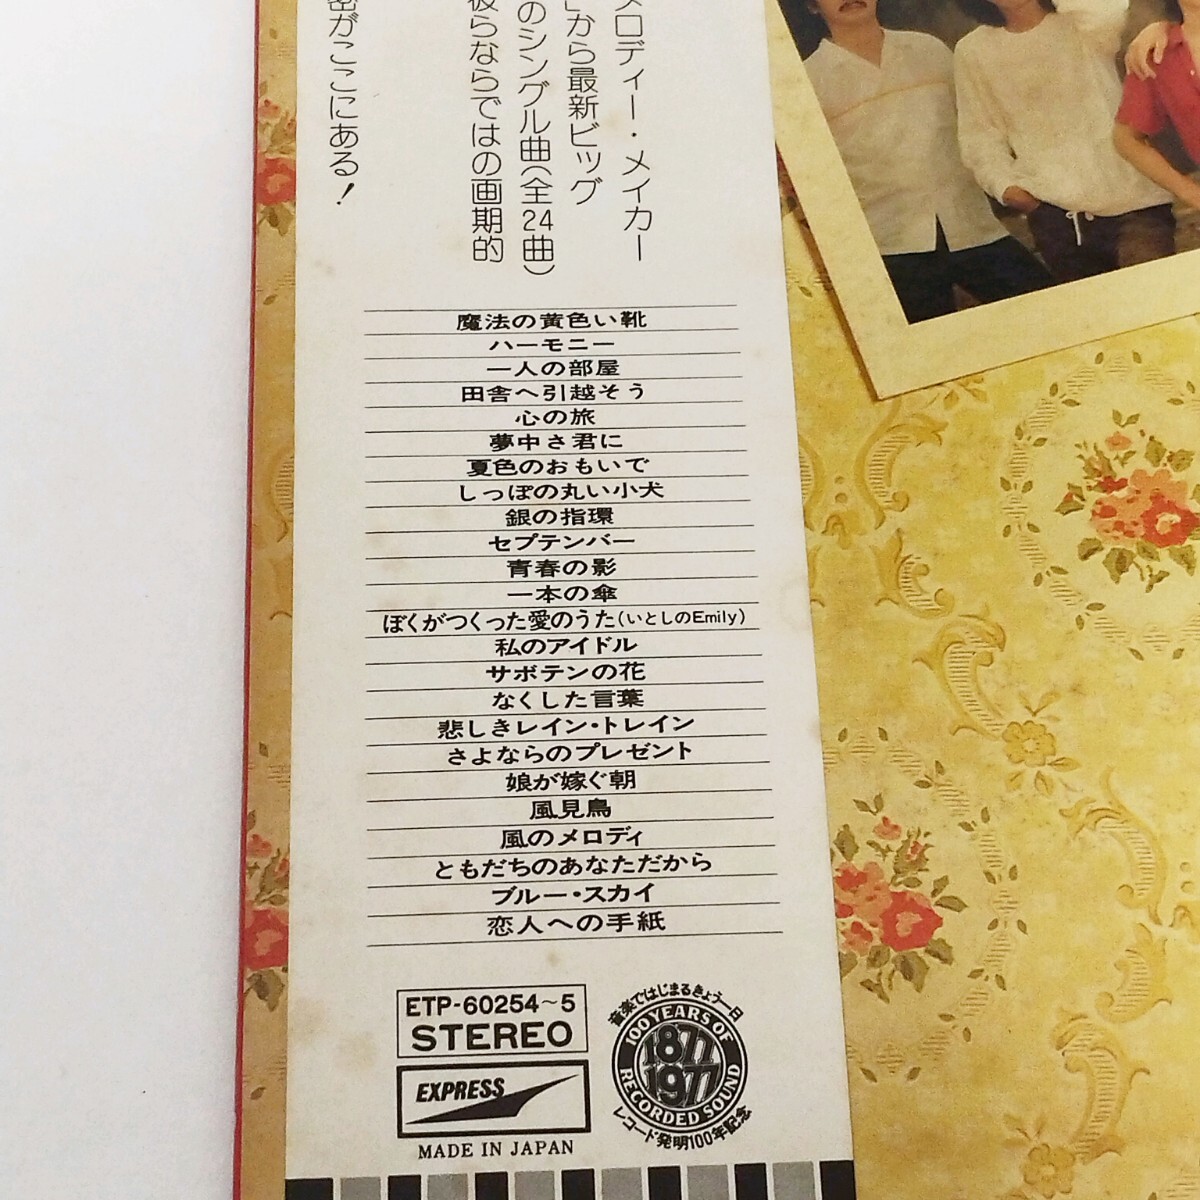 メロディー・メイカー
から最新ビッグ
のシングル曲(全24曲)
彼らならではの画期的
密がここにある!
魔法の黄色い靴
ハーモニー
一人の部屋
田舎へ引越そう
心の旅
夢中さ君に
夏色のおもいで
しっぽの丸い小犬
銀の指環
セプテンバー
青春の影
一本の傘
ぼくがつくった愛のうた(いとしのEmily)
私のアイドル
サボテンの花
なくした言葉
悲しきレイン・トレイン
さよならのプレゼント
娘が嫁ぐ朝
風見鳥
風のメロディ
ともだちのあなただから
ブルー・スカイ
恋人への手紙
ETP-60254~5
STEREO
EXPRESS
MADE IN JAPAN
音楽ではじまるきょう一日
100 YEARS OF
1877
1977
RECORDED SOUND
レコード発明100年記念